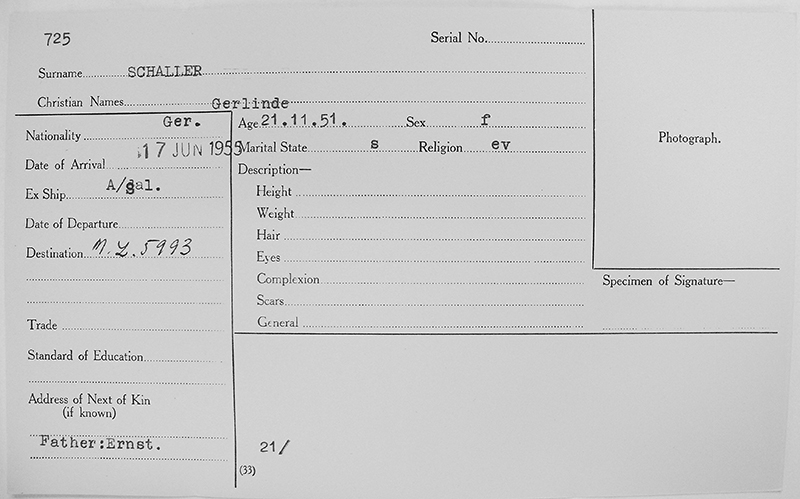 725
Serial No.
Surname SCHALLER
Christian Names Gerlinde
Nationality Ger.
Date of Arrival 17 JUN 1955
Ex Ship A/gal.
Date of Departure
Destination M.L. 5993
Trade
Standard of Education
Address of Next of Kin
(if known)
Father:Ernst.
Age 21.11.51. Sex f
Marital State s Religion ev
Description—
Height
Weight
Hair
Eyes
Complexion
Scars
General
21/
(33)
Photograph.
Specimen of Signature—